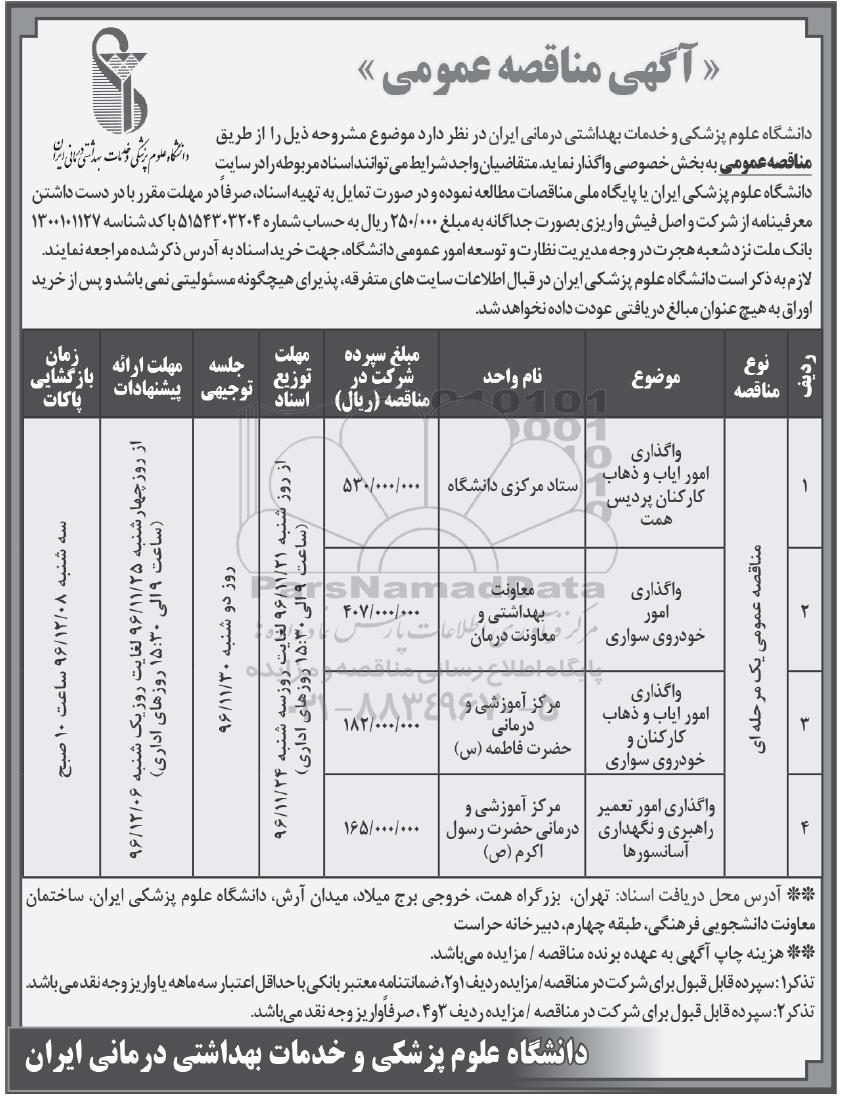 « آگهی مناقصه عمومی »
دانشگاه علوم پزشکی و خدمات بهداشتی درمانی ایران
دانشگاه علوم پزشکی و خدمات بهداشتی درمانی ایران در نظر دارد موضوع مشروحه ذیل را از طریق
مناقصه عمومی به بخش خصوصی واگذار نماید. متقاضیان واجد شرایط می توانند اسناد مربوطه را در سایت
دانشگاه علوم پزشکی ایران یا پایگاه ملی مناقصات مطالعه نموده و در صورت تمایل به تهیه اسناد، صرفاً در مهلت مقرر با در دست داشتن
معرفینامه از شرکت و اصل فیش واریزی بصورت جداگانه به مبلغ ۲۵۰/۰۰۰ ریال به حساب شماره ۵۱۵۴۳۰۳۲۰۴ با کد شناسه ۱۳۰۰۱۰۱۱۲۷
بانک ملت نزد شعبه هجرت در وجه مدیریت نظارت و توسعه امور عمومی دانشگاه، جهت خرید اسناد به آدرس ذکر شده مراجعه نمایند.
لازم به ذکر است دانشگاه علوم پزشکی ایران در قبال اطلاعات سایت های متفرقه، پذیرای هیچگونه مسئولیتی نمی باشد و پس از خرید
اوراق به هیچ عنوان مبالغ دریافتی عودت داده نخواهد شد.
ردیف
نوع
مناقصه
موضوع
نام واحد
مبلغ سپرده
شرکت در
مناقصه (ریال)
مهلت
توزیع
اسناد
جلسه
توجیهی
مهلت ارائه
پیشنهادات
زمان
بازگشایی
پاکات
۱
مناقصه عمومی یک مرحله ای
واگذاری
امور ایاب و ذهاب
کارکنان پردیس
همت
ستاد مرکزی دانشگاه
۵۳۰/۰۰۰/۰۰۰
از روز شنبه ۹۶/۱۱/۲۱ لغایت روز سه شنبه ۹۶/۱۱/۲۴
(ساعت ۹ الی ۱۵:۳۰ روزهای اداری)
روز دو شنبه ۹۶/۱۱/۳۰
از روز چهارشنبه ۹۶/۱۱/۲۵ لغایت روز یک شنبه ۹۶/۱۲/۰۶
(ساعت ۹ الی ۱۵:۳۰ روزهای اداری)
سه شنبه ۹۶/۱۲/۰۸ ساعت ۱۰ صبح
۲
واگذاری
امور
خودروی سواری
معاونت
بهداشتی و
معاونت درمان
۴۰۷/۰۰۰/۰۰۰
۳
واگذاری
امور ایاب و ذهاب
کارکنان و
خودروی سواری
مرکز آموزشی و
درمانی
حضرت فاطمه (س)
۱۸۲/۰۰۰/۰۰۰
۴
واگذاری امور تعمیر
راهبری و نگهداری
آسانسورها
مرکز آموزشی و
درمانی حضرت رسول
اکرم (ص)
۱۶۵/۰۰۰/۰۰۰
ParsNamadData
مرکز فن‌آوری اطلاعات پارس نماد داده ها
پایگاه اطلاع رسانی مناقصه و مزایده
۰۲۱-۸۸۳۴۹۶۷۰-۵
** آدرس محل دریافت اسناد: تهران، بزرگراه همت، خروجی برج میلاد، میدان آرش، دانشگاه علوم پزشکی ایران، ساختمان
معاونت دانشجویی فرهنگی، طبقه چهارم، دبیرخانه حراست
** هزینه چاپ آگهی به عهده برنده مناقصه / مزایده می‌باشد.
تذکر۱: سپرده قابل قبول برای شرکت در مناقصه/ مزایده ردیف ۱و۲، ضمانتنامه معتبر بانکی با حداقل اعتبار سه ماهه یا واریز وجه نقد می باشد.
تذکر۲: سپرده قابل قبول برای شرکت در مناقصه / مزایده ردیف ۳و۴ ، صرفاً واریز وجه نقد می‌باشد.
دانشگاه علوم پزشکی و خدمات بهداشتی درمانی ایران